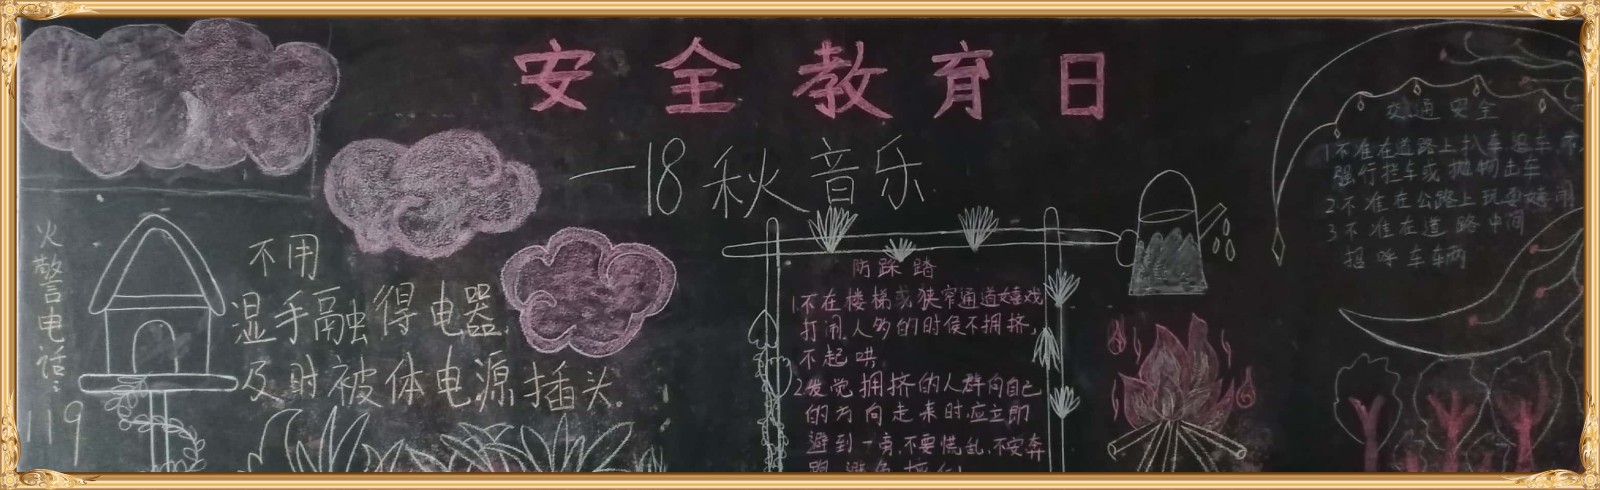 安全教育日
—18秋音乐
火警电话:
119
不用
湿手融得电器,
及时被体电源插头.
防踩踏
1不在楼梯或狭窄通道嬉戏
打闹,人多的时候不拥挤,
不起哄.
2发觉拥挤的人群向自己
的方向走来时,应立即
避到一旁,不要慌乱,不要奔
跑
交通安全
1不准在道路上扒车追车
强行拦车或抛物击车
2不准在公路上玩耍嬉闹
3不准在道路中间
招呼车辆